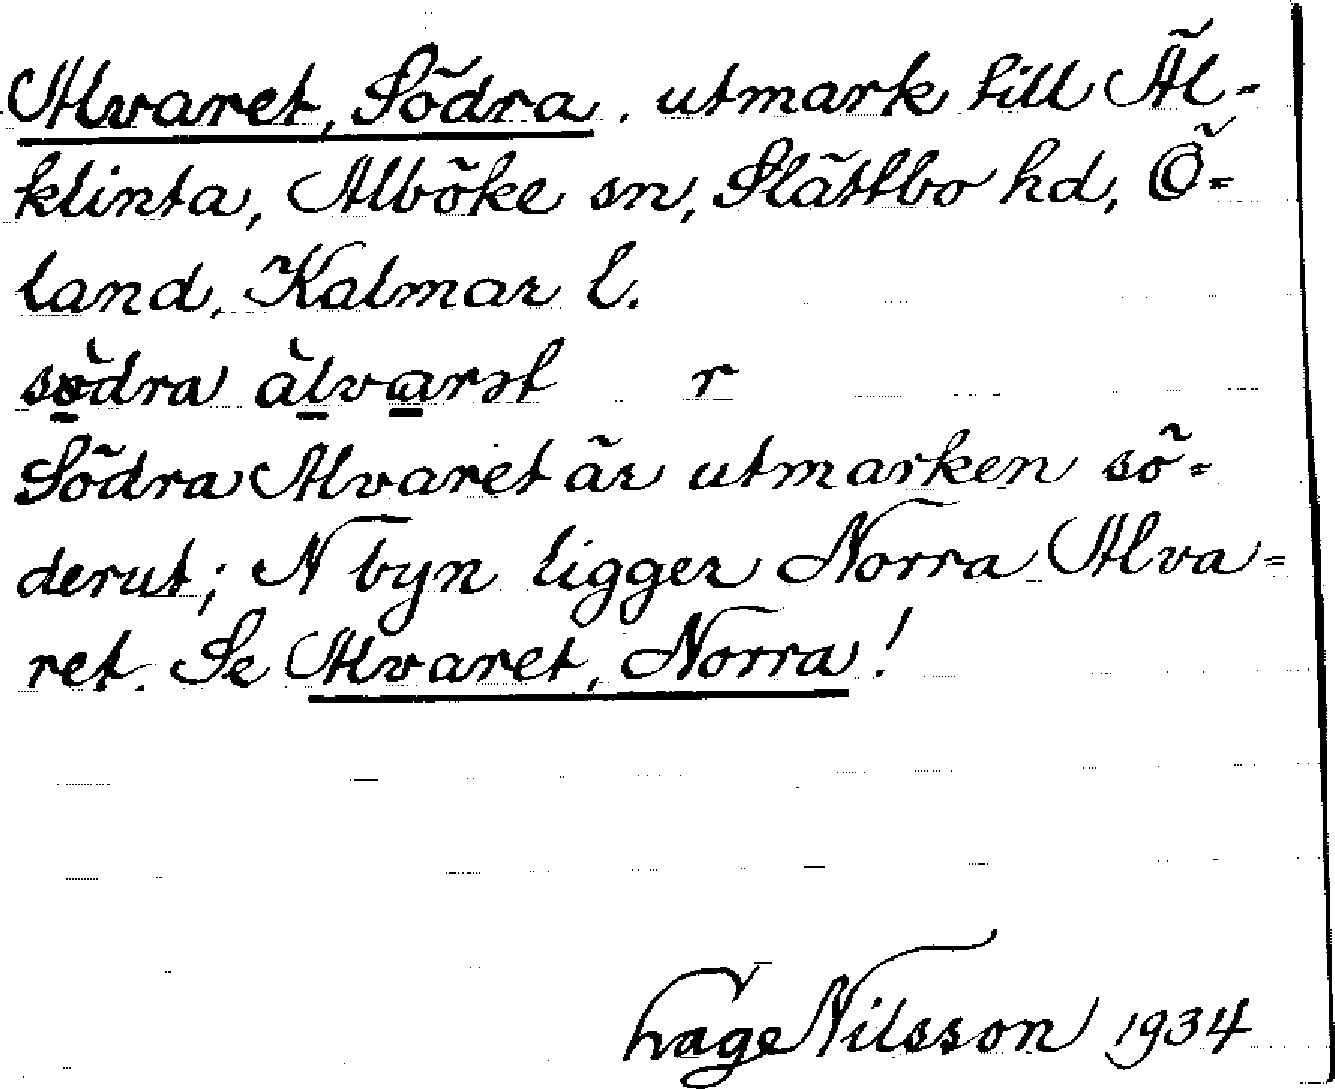 Alvaret, Södra. utmark till Äl-
klinta, Alböke sn, Slättbo hd, Ö-
land, Kalmar l.
södra àlvarət r
Södra Alvaret är utmarken sö-
derut; N byn ligger Norra Alva-
ret. Se Alvaret, Norra!
Hage Nilsson 1934